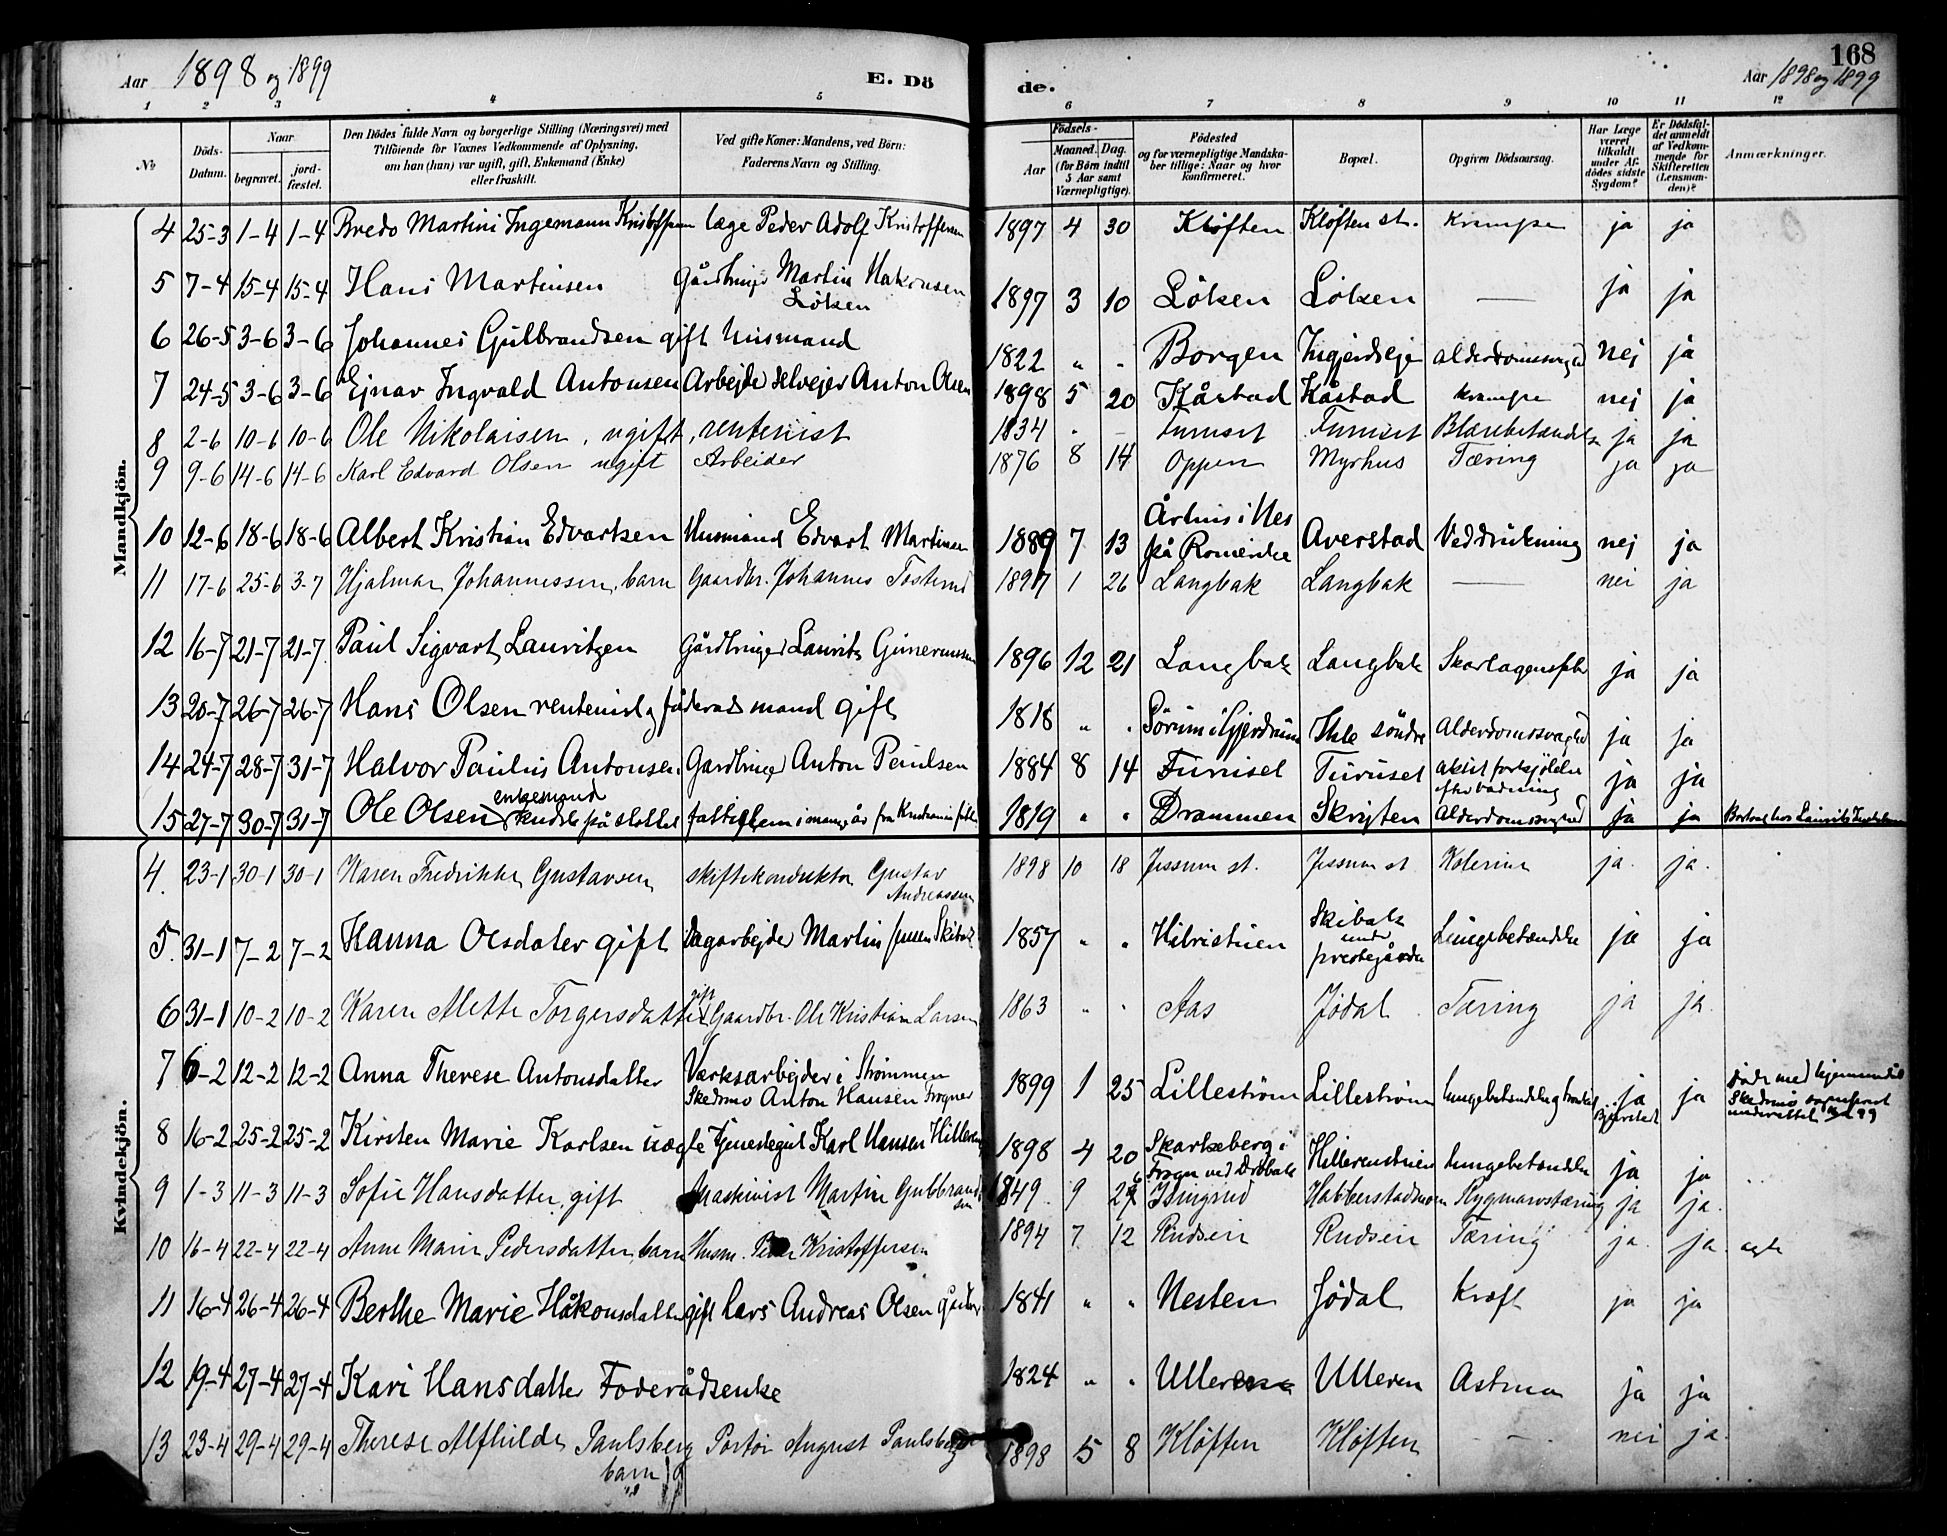 Aar 1898 og 1899 E. Dö de. Aar 1898 og 1899 168
1 2 3 4 5 6 7 8 9 10 11 12
No
Döds-Datum.
Naar begravet. jord-fæstet.
Den Dödes fulde Navn og borgerlige Stilling (Næringsvei) med Tilföiende for Voxnes Vedkommende af Oplysning, om han (hun) var ugift, gift, Enkemand (Enke) eller fraskilt.
Ved gifte Koner: Mandens, ved Börn: Faderens Navn og Stilling.
Födsels- Aar Maaned. Dag. (for Börn indtil 5 Aar samt Værnepligtige).
Födested og for værnepligtige Mandskaber tillige: Naar og hvor konfirmeret.
Bopæl.
Opgiven Dödsaarsag.
Har Læge været tilkaldt under Afdödes sidste Sygdom?
Er Dödsfaldet anmeldt af Vedkommende for Skifteretten (Lensmanden)?
Anmærkninger.
Mandkjön.
4 25-3 1-4 1-4 Bredo Martini Ingemann Kristoffersen læge Peder Adolf Kristoffersen 1897 4 30 Kløften Kløften st. Krampe ja ja
5 7-4 15-4 15-4 Hans Martinsen Gårdbruger Martin Hakonsen Løken 1897 3 10 Löken Löken — ja ja
6 26-5 3-6 3-6 Johannes Gulbrandsen gift Husmand 1822 " " Borgen alderdomssvaghed nej ja
7 24-5 3-6 3-6 Ejnar Ingvald Antonsen Arbejder Anton Olsen 1898 5 20 Kåstad Kåstad Krampe nej ja
8 2-6 10-6 10-6 Ole Nikolaisen, ugift, rentenist 1834 - - Furuset Furuset Blærebetændelse ja ja
9 9-6 14-6 14-6 Karl Edvard Olsen ugift Arbeider 1876 8 14 Oppen Myrhus Tæring ja ja
10 12-6 18-6 18-6 Albert Kristian Edvartsen Husmand Edvart Martinsen 1889 7 13 Århus i Nes på Romerike Averstad Veddrukning nej ja
11 17-6 25-6 3-7 Hjalmar Johannessen, barn Gaardbr. Johannes 1897 1 26 Langbak Langbak — nei ja
12 16-7 21-7 21-7 Paul Sigvart Lauritzen Gårdbruger Laurits Gunerussen 1896 12 21 Langbak Langbak Skarlagensfeber ja ja
13 20-7 26-7 26-7 Hans Olsen rentenist og föderadsmand gift 1818 " " Sörum i Gjerdrum Ihle söndre Alderdomssvaghed ja ja
14 24-7 28-7 31-7 Halvor Paulus Antonsen Gardbruger Anton Paulsen 1884 8 14 Furuset Furuset akut forkjölelse efter badning ja ja
15 27-7 30-7 31-7 Ole Olsen enkemand på slottet fattiglem i mange år fra Kristiania 1819 " " Drammen Skrigten Alderdomssvaghed ja ja
Kvindekjön.
4. 23-1 30-1 30-1 Karen Fredrikke Gustavsen skiftekonduktør Gustav Andreassen 1898 10 18 Jessum st. Jessum st Kolerine ja. ja.
5. 31-1 7-2 7-2 Hanna Olsdater gift Dagarbejder Martin Jensen Skibak 1857 " " Hilristuen Skibak under prestegården Lungebetændelse ja ja
6 31-1 10-2 10-2 Karen Mette Torgersdatter gift Gaardbr. Ole Kristian Larsen 1863 " " Aas Jødal Tæring ja ja.
7 6-2 12-2 12-2 Anna Therese Antonsdatter Værksarbejder i Strømmen Skedsmo Anton Hansen Frogner 1899 1 25 Lilleström Lilleström lungebetændelse ja ja
8 16-2 25-2 25-2 Kirsten Marie Karlsen uægte Tjenestegut Karl Hansen 1898 4 20 Skartseberg i Frogn ved Drøbak Hillerenstuen lungebetændelse ja ja
9 1-3 11-3 11-3 Sofie Hansdatter, gift Maskinist Martin Gulbrandsen 1849 9 Habberstadmoen Rygmarvstæring ja ja.
10 16-4 22-4 22-4 Anne Marie Pedersdatter, barn Husm. Peder Kristoffersen 1894 7 12 Rudsein Rudsein Tæring ja. ja ægte
11 16-4 26-4 26-4 Berthe Marie Håkonsdatter gift Lars Andreas Olsen 1841 " " Nesten Jödal Kræft ja ja
12 19-4 27-4 27-4 Kari Hansdatter Foderådsenke 1824 " " Ulleren Ulleren Astma ja ja
13 23-4 29-4 29-4 Therese Alfhilde Paulsberg barn Portør August Paulsberg 1898 5 8 Kløften Kløften - - nei ja.